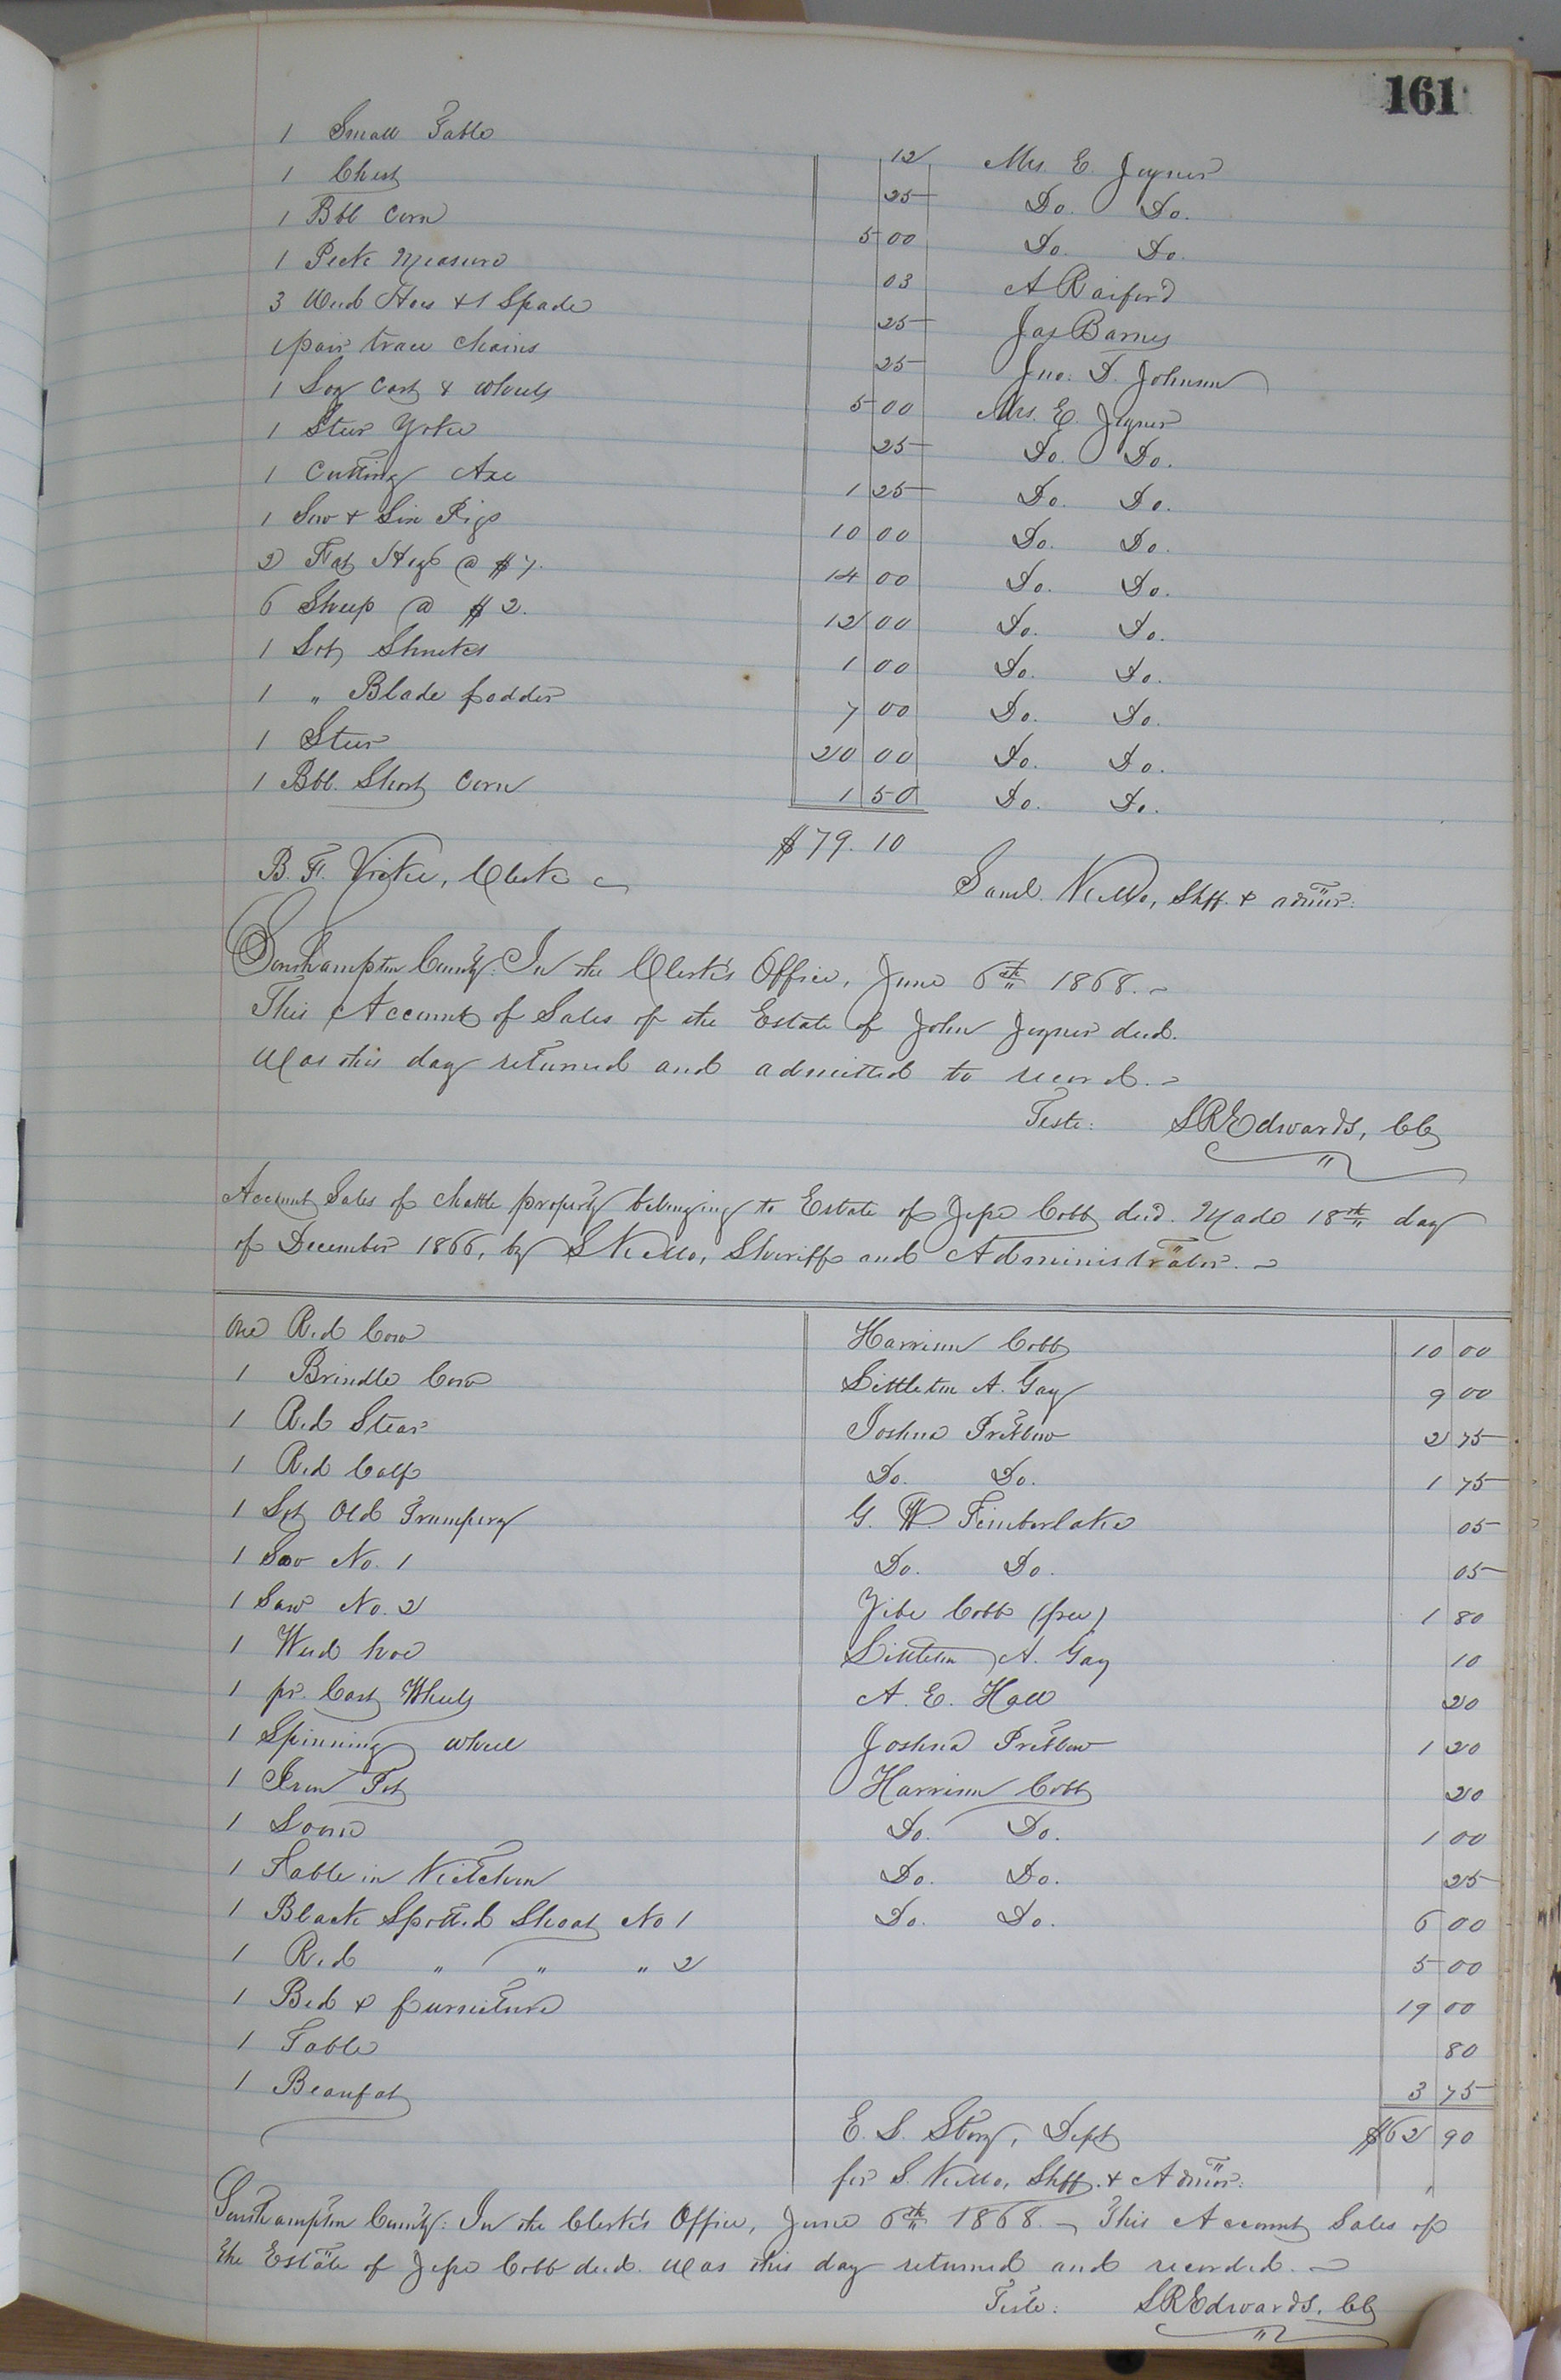 161
1 Small Table 12 Mrs. E. Joyner
1 Chest 25 Do. Do.
1 Bbl Corn 5 00 Do. Do.
1 Peck Measure 03 A Raiford
3 Weed Hoes & 1 Spade 25 Jas Barnes
1 pair trace Chains 25 Jno. D. Johnson
1 Log Cart & Wheels 5 00 Mrs. E. Joyner
1 Steer Yoke 25 Do. Do.
1 Cutting Axe 1 25 Do. Do.
1 Sow & Six Pigs 10 00 Do. Do.
2 Fat Hogs @ $7. 14 00 Do. Do.
6 Sheep @ $2. 12 00 Do. Do.
1 Lot Shucks 1 00 Do. Do.
1 " Blade fodder 7 00 Do. Do.
1 Steer 20 00 Do. Do.
1 Bbl. Short Corn 1 50 Do. Do.
$79.10
B. F. Vick, Clerk Saml. Kello, Shff. & admor.
Southampton County: In the Clerk's Office, June 6th 1868.
This Account of Sales of the Estate of John Joyner decd.
was this day returned and admitted to record.
Teste: S R Edwards, CC
Account Sales of chattle property belonging to Estate of Jesse Cobb decd. Made 18th day
of December 1866, by S Kello, Sheriff and Administrator.
One Red Cow Harrison Cobb 10 00
1 Brindle Cow Littleton A. Gay 9 00
1 Red Stear Joshua Pretlow 2 75
1 Red Calf Do. Do. 1 75
1 Lot Old Trumpery G. W. Timberlake 05
1 Saw No. 1 Do. Do. 05
1 Saw No. 2 Cobb (free) 1 80
1 Weed hoe Littleton A. Gay 10
1 pr. Cart Wheels A. E. Hall 20
1 Spinning wheel Joshua Pretlow 1 20
1 Iron Pot Harrison Cobb 20
1 Loom Do. Do. 1 00
1 Table in Kitchen Do. Do. 25
1 Black Spotted Shoat No 1 Do. Do. 6 00
1 Red " " " 2 5 00
1 Bed & furniture 19 00
1 Table 80
1 Beaufat 3 75
E. S. Story, Dept $62 90
for S. Kello, Shff. & Admor.
Southampton County: In the Clerk's Office, June 6th 1868. This Account Sales of
the Estate of Jesse Cobb decd. was this day returned and recorded.
Teste: S R Edwards, CC